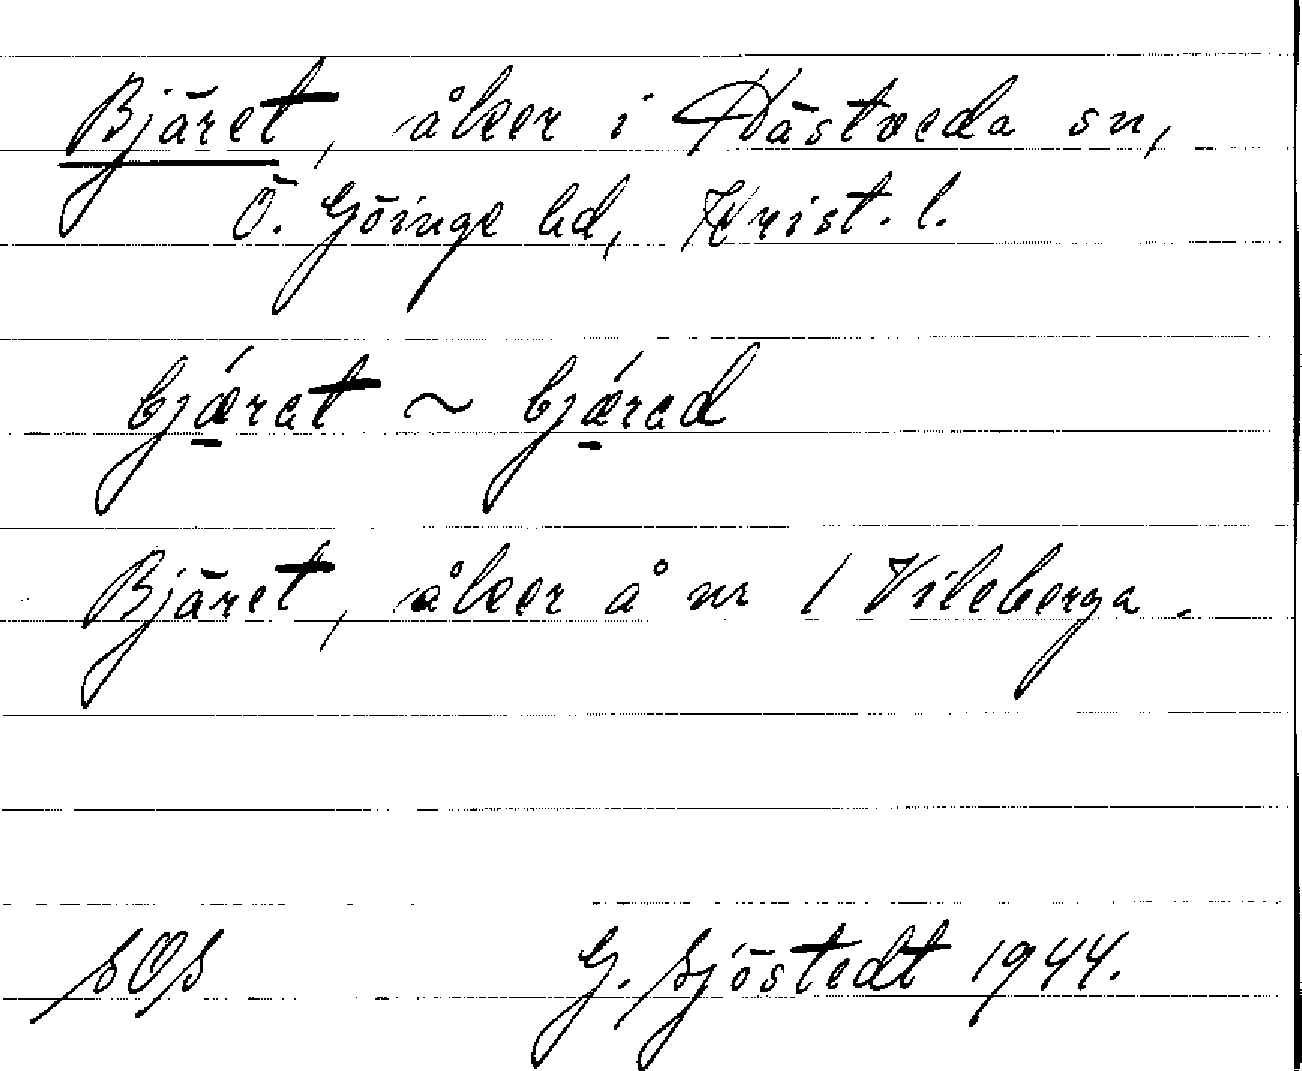 Bjäret, åker i Hästveda sn,
Ö. Göinge hd, Krist. l.
bjǽret ~ bjǽred
Bjäret, åker å nr 1 Vileberga.
SOS G. Sjöstedt 1944.